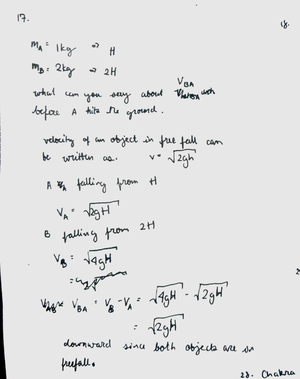 17.
18.
m_A = 1kg ⇒ H
m_B = 2kg ⇒ 2H
what can you say about V_BA
before A hits the ground.
velocity of an object in free fall can
be written as. v = √2gh
A falling from H
V_A = √2gH
B falling from 2H
V_B = √4gH
V_BA = V_B - V_A = √4gH - √2gH
= √2gH
downward since both objects are in
freefall.
23. Chakra